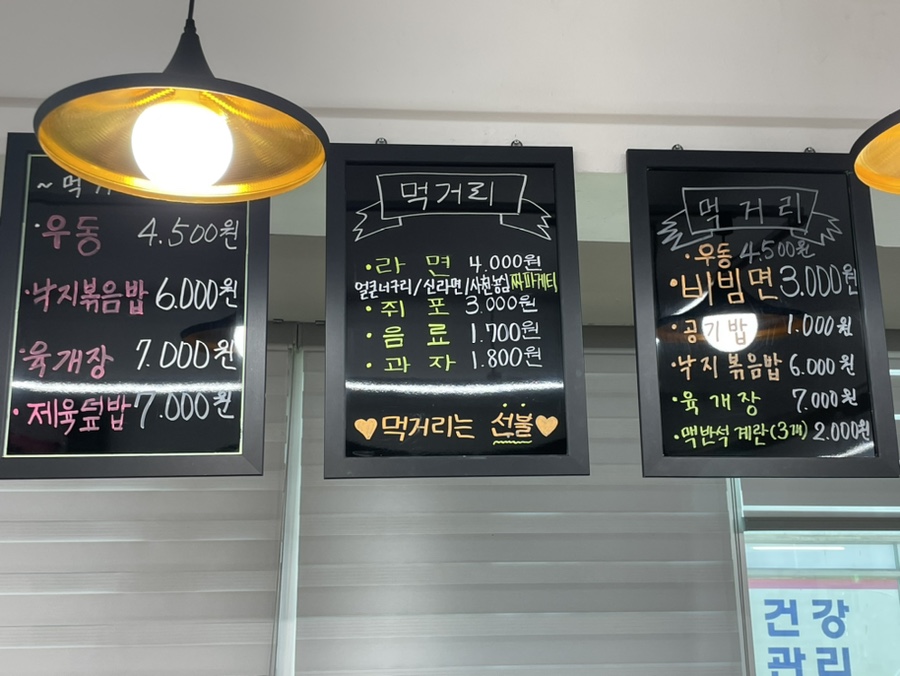 ~ 먹거
·우동 4.500원
·낙지볶음밥 6.000원
·육개장 7.000원
·제육덮밥 7.000원
먹거리
·라면 4.000원
얼큰너구리/신라면/사천뽕 짜파게티
·쥐포 3.000원
·음료 1.700원
·과자 1.800원
먹거리는 선불
먹거리
·우동 4.500원
·비빔면 3.000원
·공기밥 1.000원
·낙지볶음밥 6.000원
·육개장 7.000원
·맥반석계란(3개) 2.000원
건강
관리